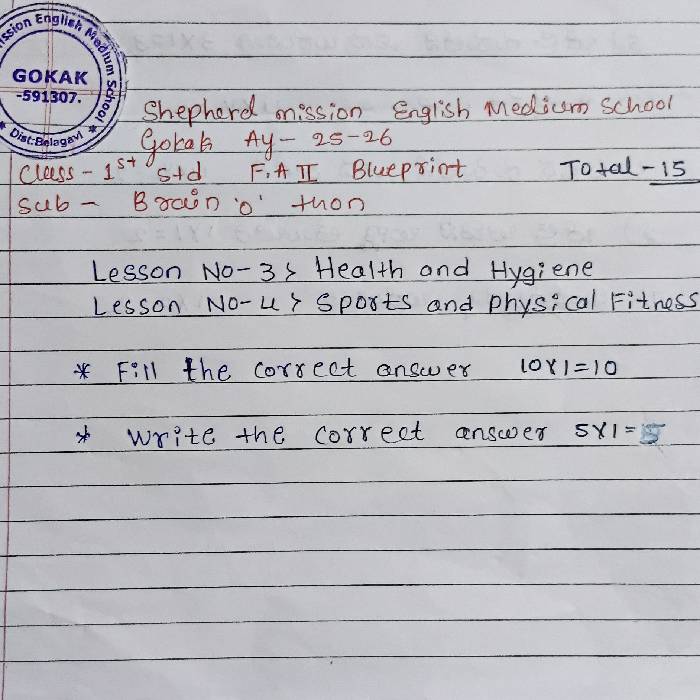 ission English Medium School
GOKAK
-591307.
* Dist:Belagavi *
Shepherd mission English Medium School
Gokak Ay - 25-26
Class - 1st Std F.A II Blueprint Total - 15
Sub - Brain 'o' thon
Lesson No-3> Health and Hygiene
Lesson No-4> Sports and physical Fitness
* Fill the correct answer 10x1=10
* Write the correct answer 5x1=5